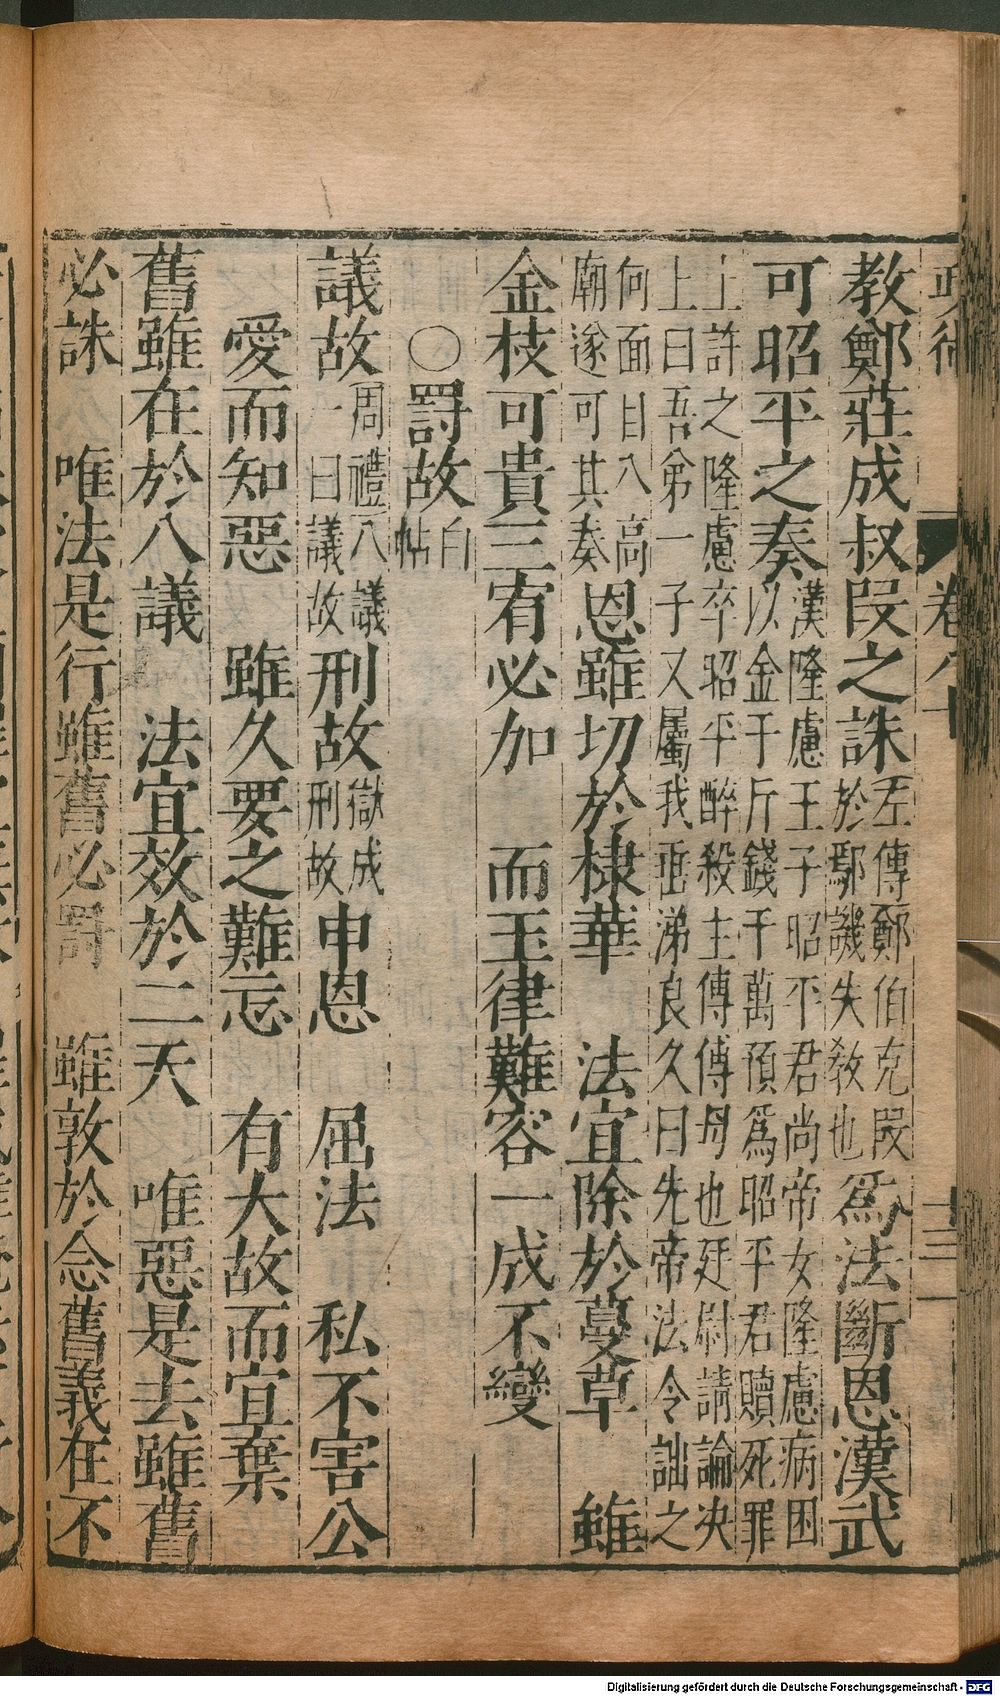 教鄭莊成叔段之誅左傳鄭伯克段於鄢譏失教也爲法斷恩漢武
可昭平之奏漢隆慮王子昭平君尚帝女隆慮病困以金千斤錢千萬預爲昭平君贖死罪
上許之隆慮卒昭平醉殺主傅傅母也廷尉請論決上曰吾弟一子又屬我垂涕良久曰先帝法令詘之
何面目入高廟遂可其奏恩雖切於棣華　法宜除於蔓草　雖
金枝可貴三宥必加　而玉律難容一成不變
○罰故白帖
議故周禮八議一曰議故刑故獄成刑故申恩　屈法　私不害公
愛而知惡　雖久要之難忘　有大故而宜棄
舊雖在於八議　法宜效於二天　唯惡是去雖舊
必誅　唯法是行雖舊必罰　雖敦於念舊義在不
卷八十
十三
Digitalisierung gefördert durch die Deutsche Forschungsgemeinschaft - DFG